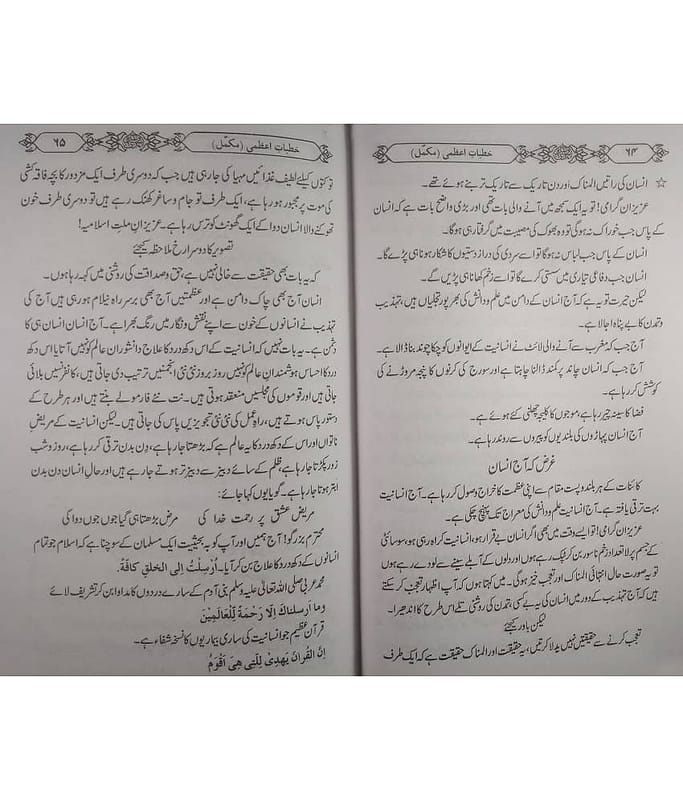 ۶۴
خطباتِ اعظمی (مکمّل)
☆ انسان کی راتیں المناک اور دن تاریک سے تاریک تر بنے ہوئے تھے۔
عزیزانِ گرامی! تو یہ ایک سمجھ میں آنے والی بات تھی اور بڑی واضح بات ہے کہ انسان
کے پاس جب خوراک نہ ہوگی تو وہ بھوک کی مصیبت میں گرفتار ہی ہوگا۔
انسان کے پاس جب لباس نہ ہوگا تو اسے سردی کی دراز دستیوں کا شکار ہونا ہی پڑے گا۔
انسان جب دفاعی تیاری میں سستی کرے گا تو اسے زخم کھانا ہی پڑیں گے۔
لیکن حیرت تو یہ ہے کہ آج انسان کے دامن میں علم و دانش کی بھرپور تجلیاں ہیں، تہذیب
و تمدن کا بے پناہ اجالا ہے۔
آج جب کہ مغرب سے آنے والی لائٹ نے انسانیت کے ایوانوں کو چکا چوند بنا ڈالا ہے۔
آج جب کہ انسان چاند پر کمند ڈالنا چاہتا ہے اور سورج کی کرنوں کا پنجہ مروڑنے کی
کوشش کر رہا ہے۔
فضا کا سینہ چیر رہا ہے، موجوں کا کلیجہ چھلنی کئے ہوئے ہے۔
آج انسان پہاڑوں کی بلندیوں کو پیروں سے روند رہا ہے۔
غرض کہ آج انسان
کائنات کے ہر بلند و پست مقام سے اپنی عظمت کا خراج وصول کر رہا ہے۔ آج انسانیت
بہت ترقی یافتہ ہے۔ آج انسانیت علم و دانش کی معراج تک پہنچ چکی ہے۔
عزیزانِ گرامی! تو ایسے وقت میں بھی اگر انسان بے قرار ہو، انسانیت کراہ رہی ہو، سوسائٹی
کے جسم پر لاتعداد زخم ناسور بن کر ٹپک رہے ہوں اور دلوں کے آبلے سینے سے لو دے رہے ہوں
تو یہ صورت حال انتہائی المناک اور تعجب خیز ہوگی۔ میں کہتا ہوں کہ آپ اظہار تعجب کر سکتے
ہیں کہ آج تہذیب کے دور میں انسان کی یہ بے کسی، تمدن کی روشنی تلے اس طرح کا اندھیرا۔
لیکن باور کیجئے
تعجب کرنے سے حقیقتیں نہیں بدلا کرتیں، یہ حقیقت اور المناک حقیقت ہے کہ ایک طرف
خطباتِ اعظمی (مکمّل)
۶۵
تو کتوں کیلئے لطیف غذائیں مہیا کی جا رہی ہیں جب کہ دوسری طرف ایک مزدور کا بچہ فاقہ کشی
کی موت پر مجبور ہو رہا ہے، ایک طرف تو جام و ساغر کھنک رہے ہیں تو دوسری طرف خون
تھوکنے والا انسان دوا کے ایک گھونٹ کو ترس رہا ہے۔ عزیزانِ ملتِ اسلامیہ!
تصویر کا دوسرا رخ ملاحظہ کیجئے
کہ یہ بات بھی حقیقت سے خالی نہیں ہے، حق و صداقت کی روشنی میں کہہ رہا ہوں۔
انسان آج بھی چاک دامن ہے اور عظمتیں آج بھی برسرِ راہ نیلام ہو رہی ہیں آج کی
تہذیب نے انسانوں کے خون سے اپنے نقش و نگار میں رنگ بھرا ہے۔ آج انسان انسان ہی کا
دشمن ہے۔ یہ بات نہیں کہ انسانیت کے اس دکھ درد کا علاج دانشورانِ عالم کو نہیں آتا یا اس دکھ
درد کا احساس ہوشمندانِ عالم کو نہیں روز بروز نئی نئی انجمنیں ترتیب دی جاتی ہیں، کانفرنسیں بلائی
جاتی ہیں اور قوموں کی مجلسیں منعقد ہوتی ہیں۔ نت نئے فارمولے بنتے ہیں اور ہر طرح کے
دستور پاس ہوتے ہیں، راہِ عمل کی نئی نئی تجویزیں پاس کی جاتی ہیں۔ لیکن انسانیت کے مریضِ
ناتواں اور اس کے دکھ درد کا یہ عالم ہے کہ بڑھتا جا رہا ہے، دن بدن ترقی کر رہا ہے، روز و شب
زور پکڑتا جا رہا ہے، ظلم کے سائے دبیز سے دبیز تر ہوتے جا رہے ہیں اور حالِ انسان دن بدن
ابتر ہوتا جا رہا ہے۔ گویا یوں کہا جائے:
مریض عشق پر رحمت خدا کی مرض بڑھتا ہی گیا جوں جوں دوا کی
محترم بزرگو! آج ہمیں اور آپ کو بہ حیثیت ایک مسلمان کے سوچنا ہے کہ اسلام جو تمام
انسانوں کے دکھ درد کا علاج بن کر آیا۔ اُرْسِلْتُ اِلی الخلقِ کافَۃً.
محمد عربی صلی اللہ تعالیٰ علیہ وسلم بنی آدم کے سارے دردوں کا مداوا بن کر تشریف لائے
وما اَرسلنٰک اِلَّا رَحْمَۃً لِّلْعَالَمِیْنَ
قرآنِ عظیم جو انسانیت کی ساری بیماریوں کا نسخۂ شفاء ہے۔
اِنَّ القُرآنَ یَھدِیْ لِلَّتِی ھِیَ اَقْوَمُ